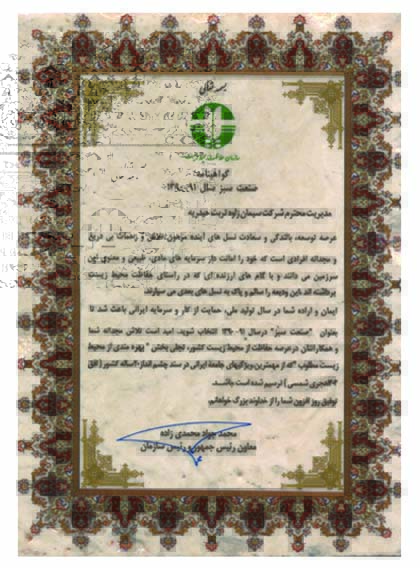 بسمه تعالی
سازمان حفاظت محیط زیست
گواهینامه
صنعت سبز سال ۹۱-۱۳۹۰
مدیریت محترم شرکت سیمان زاوه تربت حیدریه
عرصه توسعه، بالندگی و سعادت نسل های آینده مرهون تلاش و زحمات بی دریغ
و مجدانه افرادی است که خود را امانت دار سرمایه های مادی، طبیعی و معنوی این
سرزمین می دانند و با گام های ارزنده ای که در راستای حفاظت محیط زیست
برداشته اند این ودیعه را سالم و پاک به نسل های بعدی می سپارند.
ایمان و اراده شما در سال تولید ملی، حمایت از کار و سرمایه ایرانی باعث شد تا
بعنوان "صنعت سبز" درسال ۹۱-۱۳۹۰ انتخاب شوید. امید است تلاش مجدانه شما
و همکارانتان درعرصه حفاظت از محیط زیست کشور، تجلی بخش "بهره مندی از محیط
زیست مطلوب "که از مهمترین ویژگیهای جامعه ایرانی در سند چشم انداز ۲۰ساله کشور ( افق
۱۴۰۴هجری شمسی ) ترسیم شده است باشد.
توفیق روز افزون شما را از خداوند بزرگ خواهانم.
محمد جواد محمدی زاده
معاون رئیس جمهور و رئیس سازمان